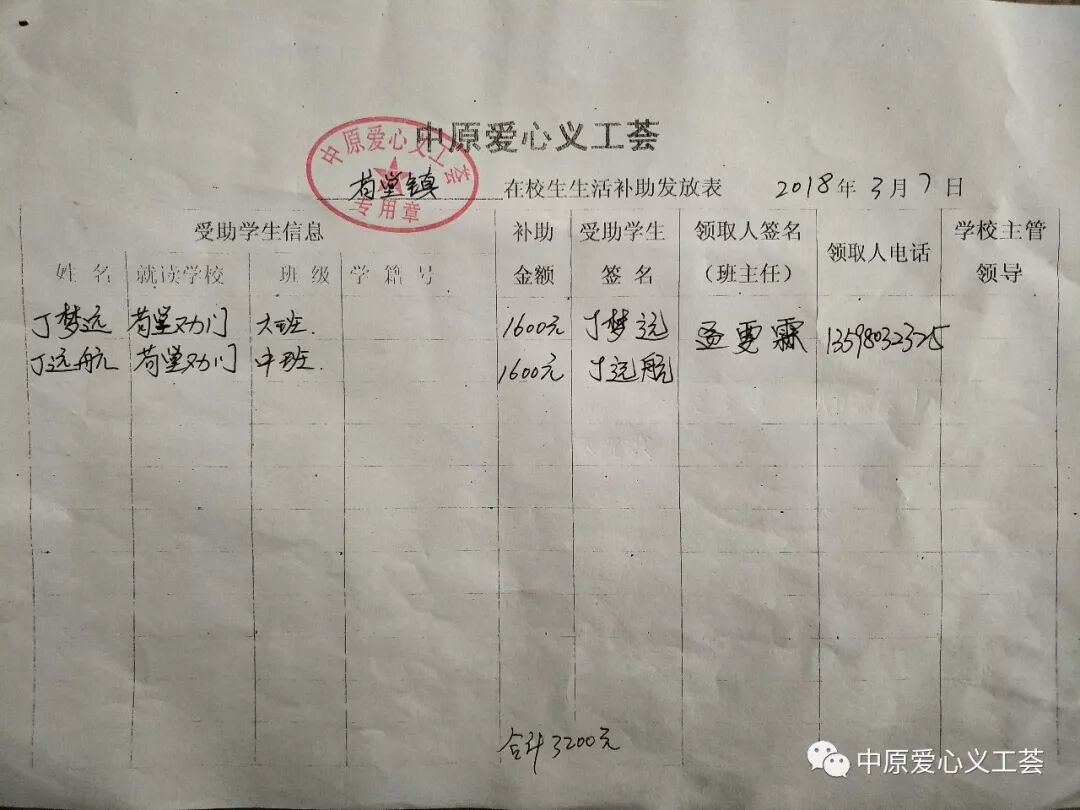 中原爱心义工荟
中原爱心义工荟
专用章
苟堂镇 在校生生活补助发放表 2018年3月7日
受助学生信息 补助 受助学生 领取人签名 领取人电话 学校主管
姓名 就读学校 班级 学籍号 金额 签名 （班主任） 领导
丁梦远 苟堂 大班. 1600元 丁梦远 13598032325
丁远航 苟堂 中班. 1600元 丁远航
合计3200元
中原爱心义工荟